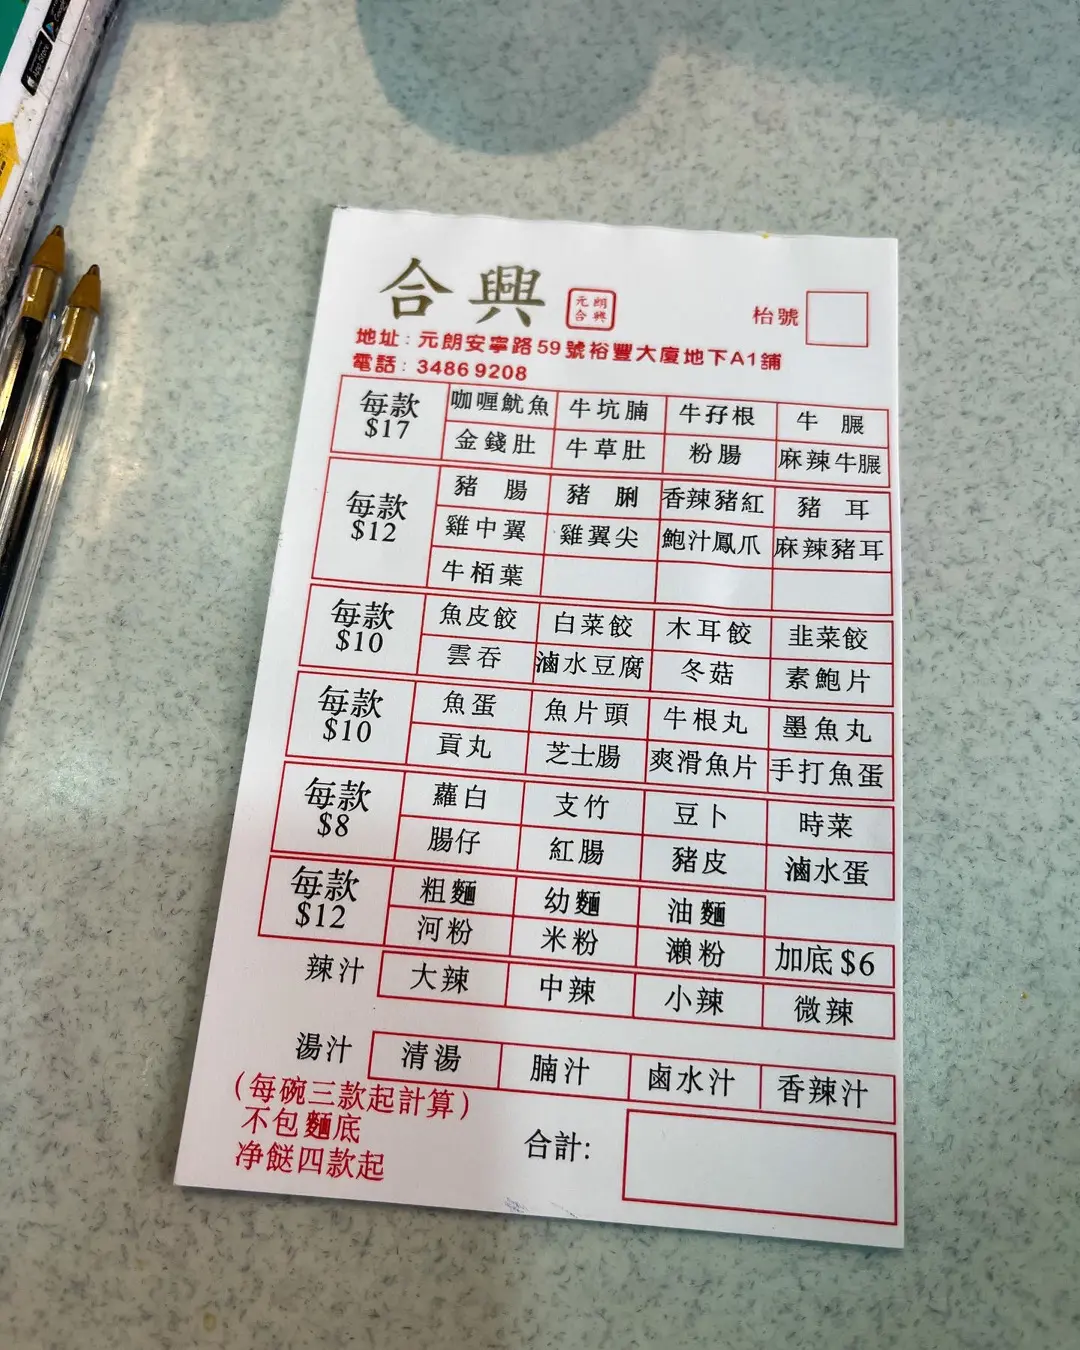 合興
元朗
合興
枱號
地址：元朗安寧路59號裕豐大廈地下A1舖
電話：3486 9208
每款 $17
咖喱魷魚 牛坑腩 牛孖根 牛𦟌
金錢肚 牛草肚 粉腸 麻辣牛𦟌
每款 $12
豬腸 豬脷 香辣豬紅 豬耳
雞中翼 雞翼尖 鮑汁鳳爪 麻辣豬耳
牛栢葉
每款 $10
魚皮餃 白菜餃 木耳餃 韭菜餃
雲吞 滷水豆腐 冬菇 素鮑片
每款 $10
魚蛋 魚片頭 牛根丸 墨魚丸
貢丸 芝士腸 爽滑魚片 手打魚蛋
每款 $8
蘿白 支竹 豆卜 時菜
腸仔 紅腸 豬皮 滷水蛋
每款 $12
粗麵 幼麵 油麵
河粉 米粉 瀨粉 加底 $6
辣汁 大辣 中辣 小辣 微辣
湯汁 清湯 腩汁 鹵水汁 香辣汁
（每碗三款起計算）
不包麵底
净餸四款起
合計:
App Store